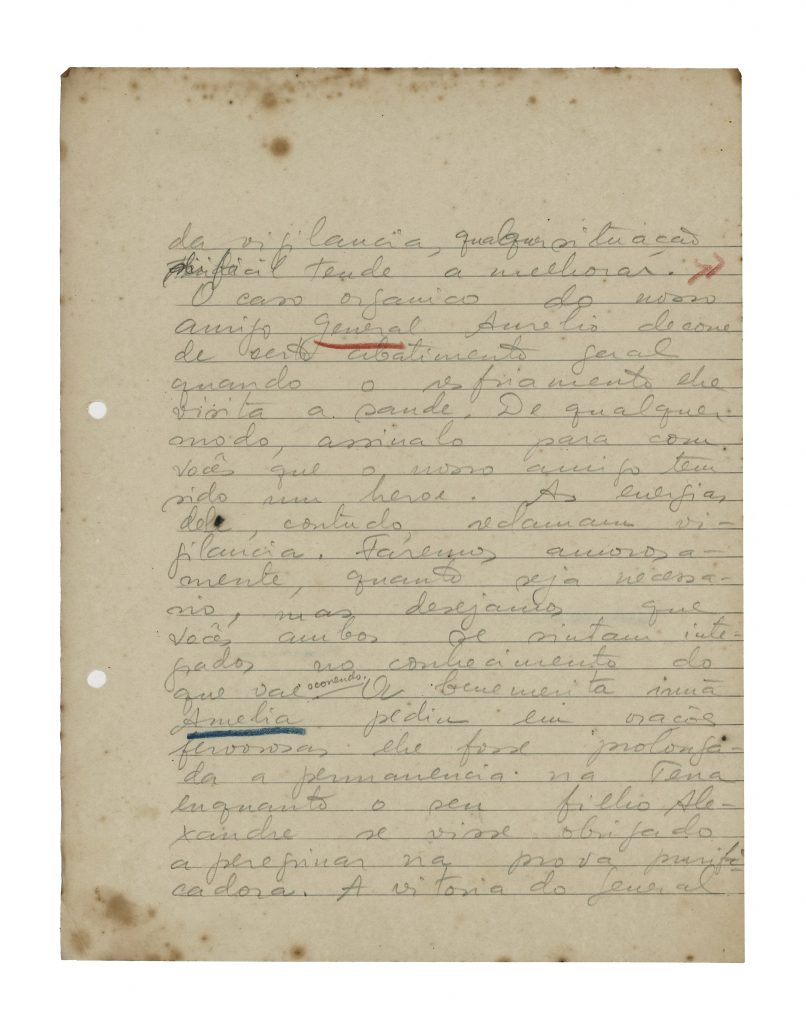 da vigilancia, qualquer situação
dificil tende a melhorar.
O caso organico do nosso
amigo General Aurelio decorre
de certo abatimento geral
quando o resfriamento lhe
visita a saude. De qualquer
modo, assinalo para com
vocês que o nosso amigo tem
sido um heroe. As energias
dele, contudo, reclamam vi-
gilancia. Faremos amorosa-
mente, quanto seja necessa-
rio, mas desejamos que
vocês ambos se sintam inte-
grados no conhecimento do
que vae ocorrendo. A benemerita irmã
Amelia pediu em orações
fervorosas lhe fosse prolonga-
da a permanencia na Terra
enquanto o seu filho Ale-
xandre se visse obrigado
a peregrinar na prova purifi-
cadora. A vitoria do General